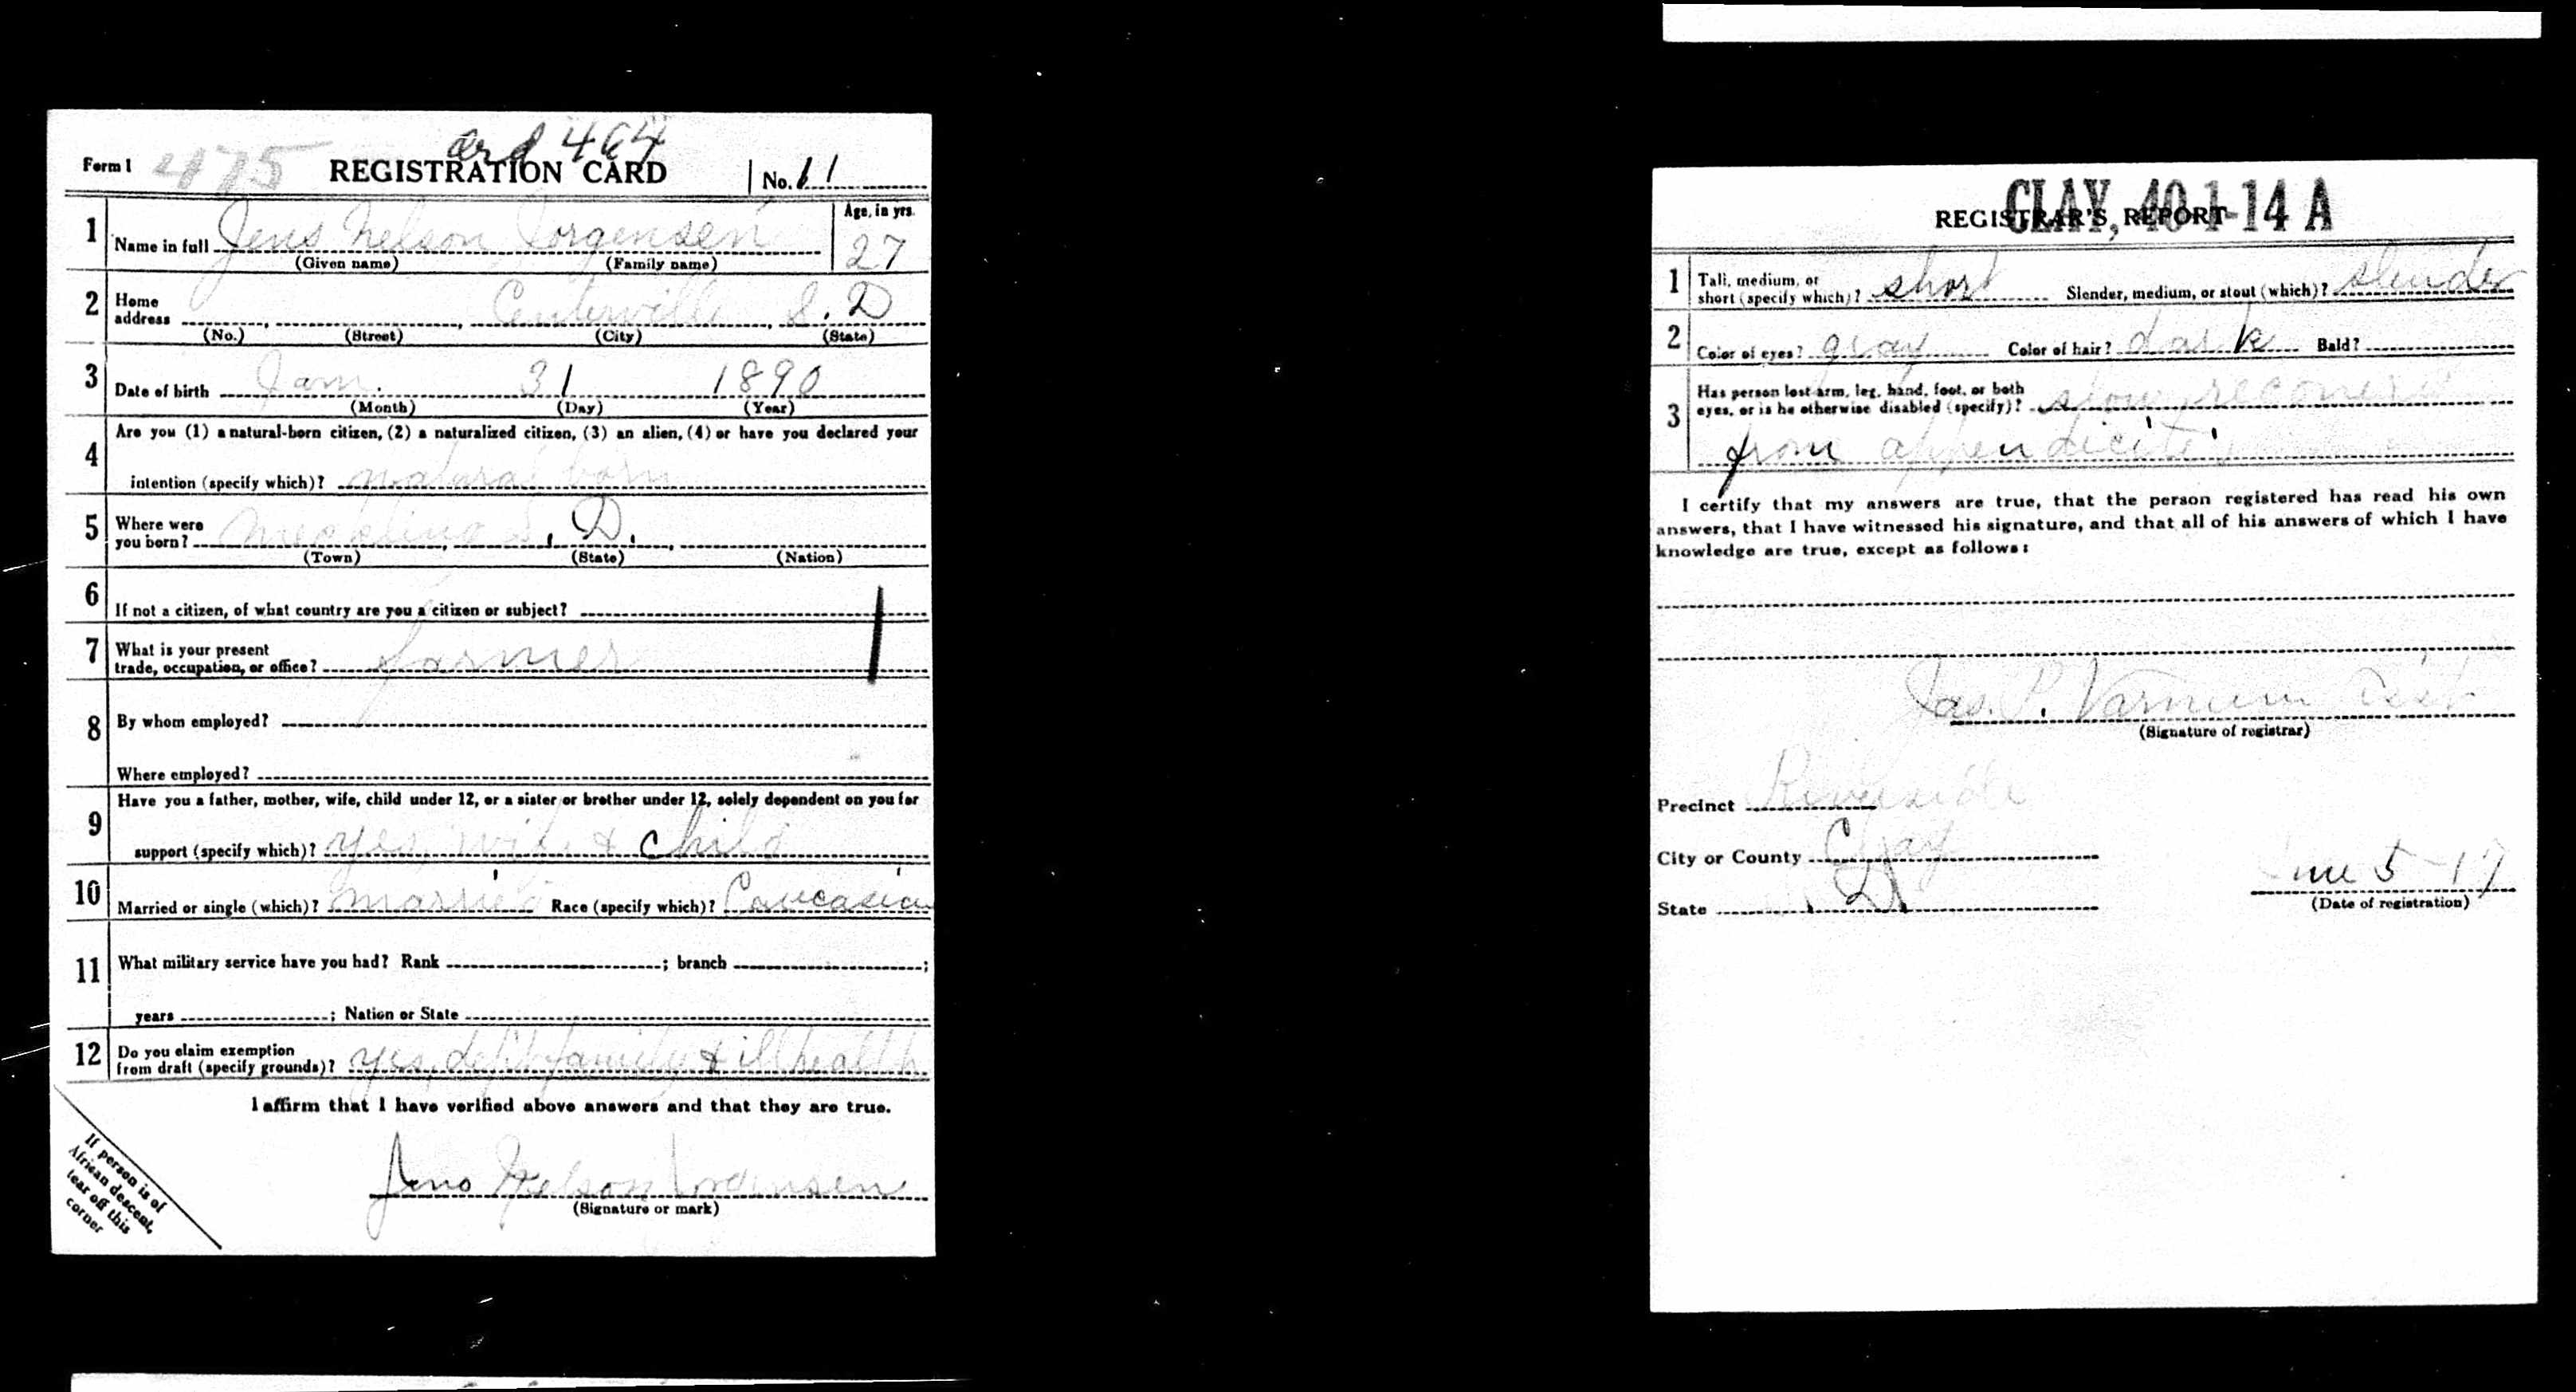 475
ord 464
Form 1 REGISTRATION CARD No. 11
1 Name in full Jens Nelson Jorgensen Age, in yrs. 27
(Given name) (Family name)
2 Home address Centerville S. D
(No.) (Street) (City) (State)
3 Date of birth Jan. 31 1890
(Month) (Day) (Year)
4 Are you (1) a natural-born citizen, (2) a naturalized citizen, (3) an alien, (4) or have you declared your
intention (specify which)? natural born
5 Where were you born? Meckling S. D.
(Town) (State) (Nation)
6 If not a citizen, of what country are you a citizen or subject?
7 What is your present trade, occupation, or office? farmer
8 By whom employed?
Where employed?
9 Have you a father, mother, wife, child under 12, or a sister or brother under 12, solely dependent on you for
support (specify which)? yes, wife & child
10 Married or single (which)? married Race (specify which)? Caucasian
11 What military service have you had? Rank ; branch ;
years ; Nation or State
12 Do you claim exemption from draft (specify grounds)? yes, dept family & ill health
I affirm that I have verified above answers and that they are true.
Jens Nelson Jorgensen
(Signature or mark)
If person is of
African descent,
tear off this
corner
CLAY, 40-1-14 A
REGISTRAR'S REPORT
1 Tall, medium, or short (specify which)? short Slender, medium, or stout (which)? slender
2 Color of eyes? gray Color of hair? dark Bald?
3 Has person lost arm, leg, hand, foot, or both
eyes, or is he otherwise disabled (specify)? slow recovery
from appendicitis
I certify that my answers are true, that the person registered has read his own
answers, that I have witnessed his signature, and that all of his answers of which I have
knowledge are true, except as follows:
Jas. P. Varnum
(Signature of registrar)
Precinct Riverside
City or County Clay
State D.
June 5-17
(Date of registration)